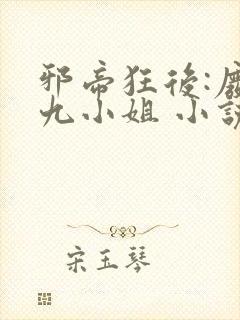 邪帝狂後:廢
九小姐 小說
宋玉琴